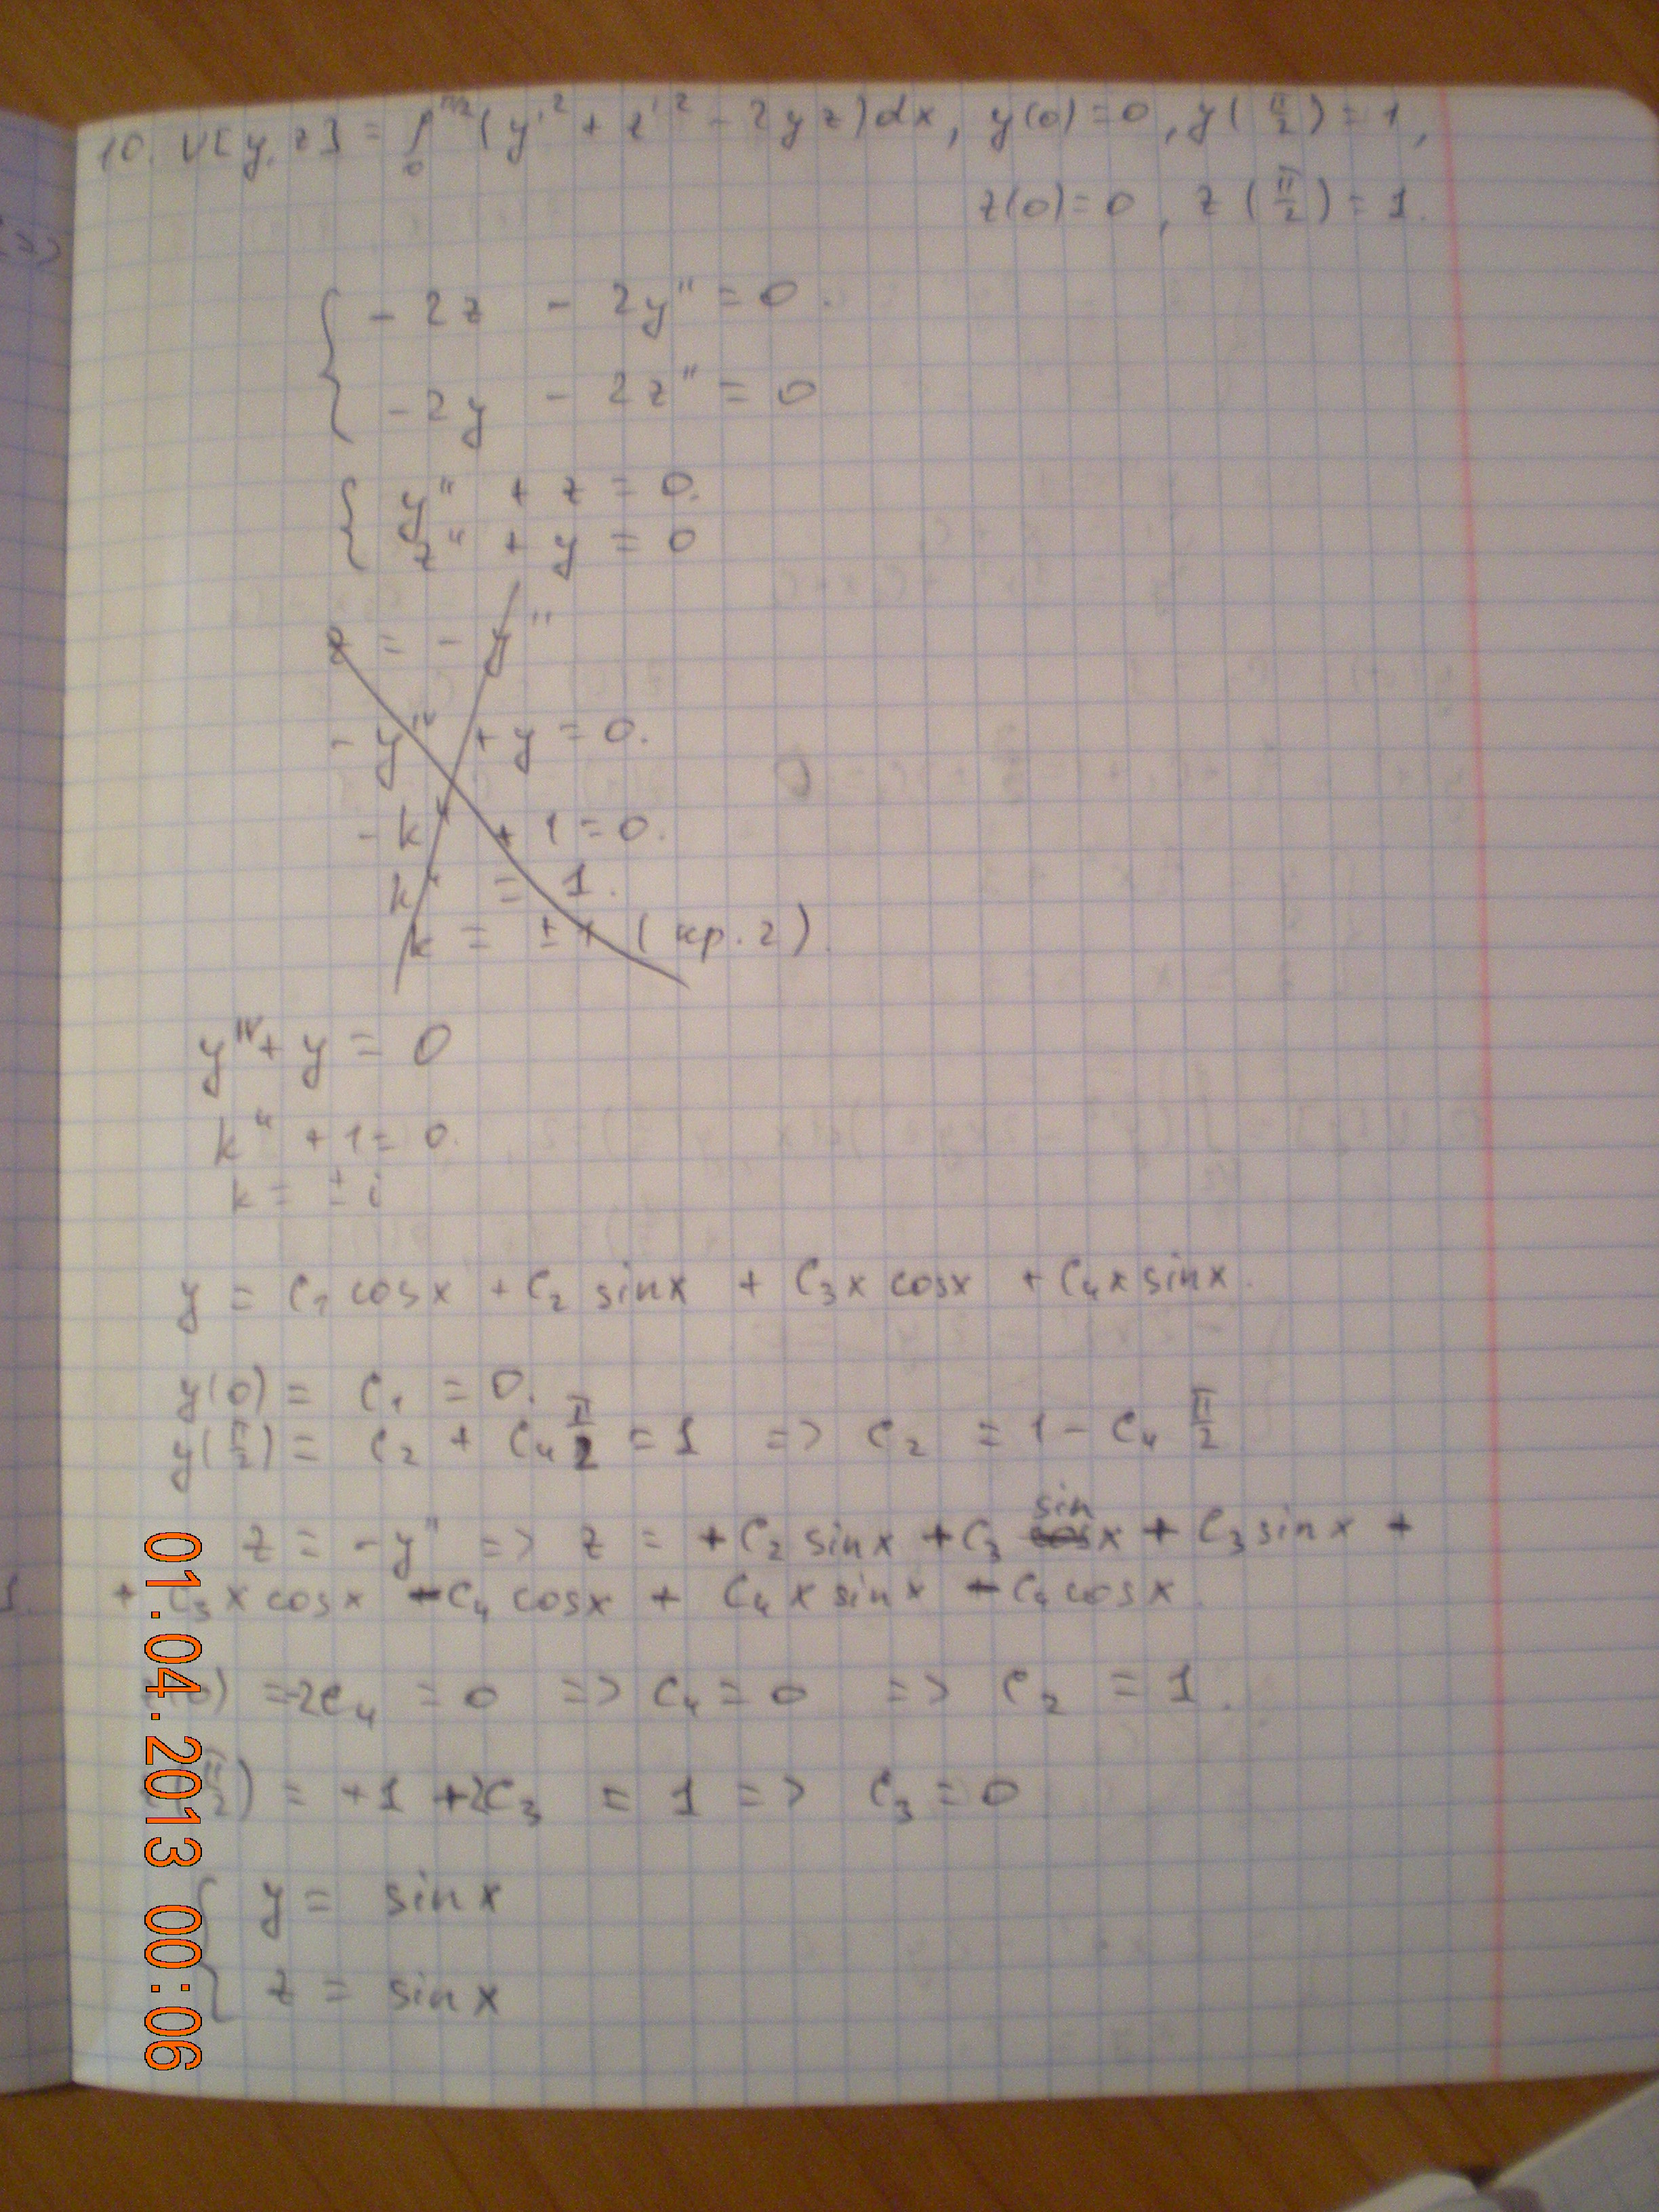 10. V[y, z] = ∫₀^π/2 (y'² + z'² - 2yz)dx, y(0)=0, y(π/2)=1,
z(0)=0, z(π/2)=1.
{ -2z - 2y'' = 0.
-2y - 2z'' = 0
{ y'' + z = 0.
z'' + y = 0
z = -y''
-y^IV + y = 0.
-k⁴ + 1 = 0.
k⁴ = 1.
k = ±1 (кр. 2)
y^IV + y = 0
k⁴ + 1 = 0.
k = ±i
y = C₁ cosx + C₂ sinx + C₃x cosx + C₄x sinx.
y(0) = C₁ = 0.
y(π/2) = C₂ + C₄ π/2 = 1 => C₂ = 1 - C₄ π/2
z = -y'' => z = +C₂ sinx + C₃ sin x + C₃ sinx +
+ C₃ x cosx - C₄ cosx + C₄ x sinx - C₄ cosx.
0) = -2C₄ = 0 => C₄ = 0 => C₂ = 1.
π/2) = +1 + 2C₃ = 1 => C₃ = 0
{ y = sinx
z = sinx
01.04.2013 00:06